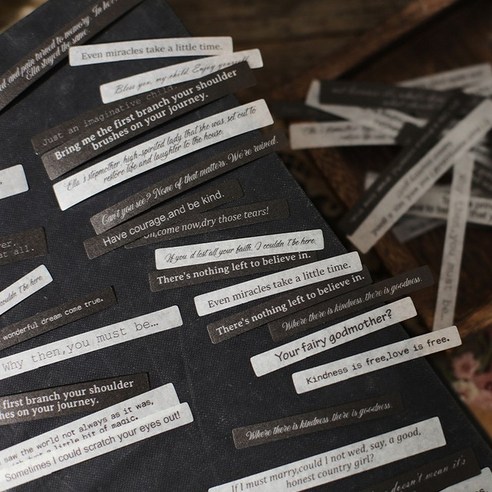 and pain turned to memory. In her
Ella stayed the same
Even miracles take a little time.
Bless you, my child. Enjoy yourself
Just an imaginative child.
Bring me the first branch your shoulder
brushes on your journey.
Ella's stepmother, high-spirited lady that she was, set out to
restore life and laughter to the house.
Can't you see? None of that matters. We're ruined.
Have courage,and be kind.
Oh, come now,dry those tears!
If you'd lost all your faith, I couldn't be here.
There's nothing left to believe in.
Even miracles take a little time.
There's nothing left to believe in.
Where there is kindness, there is goodness.
Your fairy godmother?
Kindness is free,love is free.
couldn't be here.
wonderful dream come true.
Why then,you must be…
first branch your shoulder
hes on your journey.
saw the world not always as it was,
little bit of magic.
Sometimes I could scratch your eyes out!
Where there is kindness, there is goodness.
If I must marry,could I not wed, say, a good,
honest country girl?
doesn't mean it's